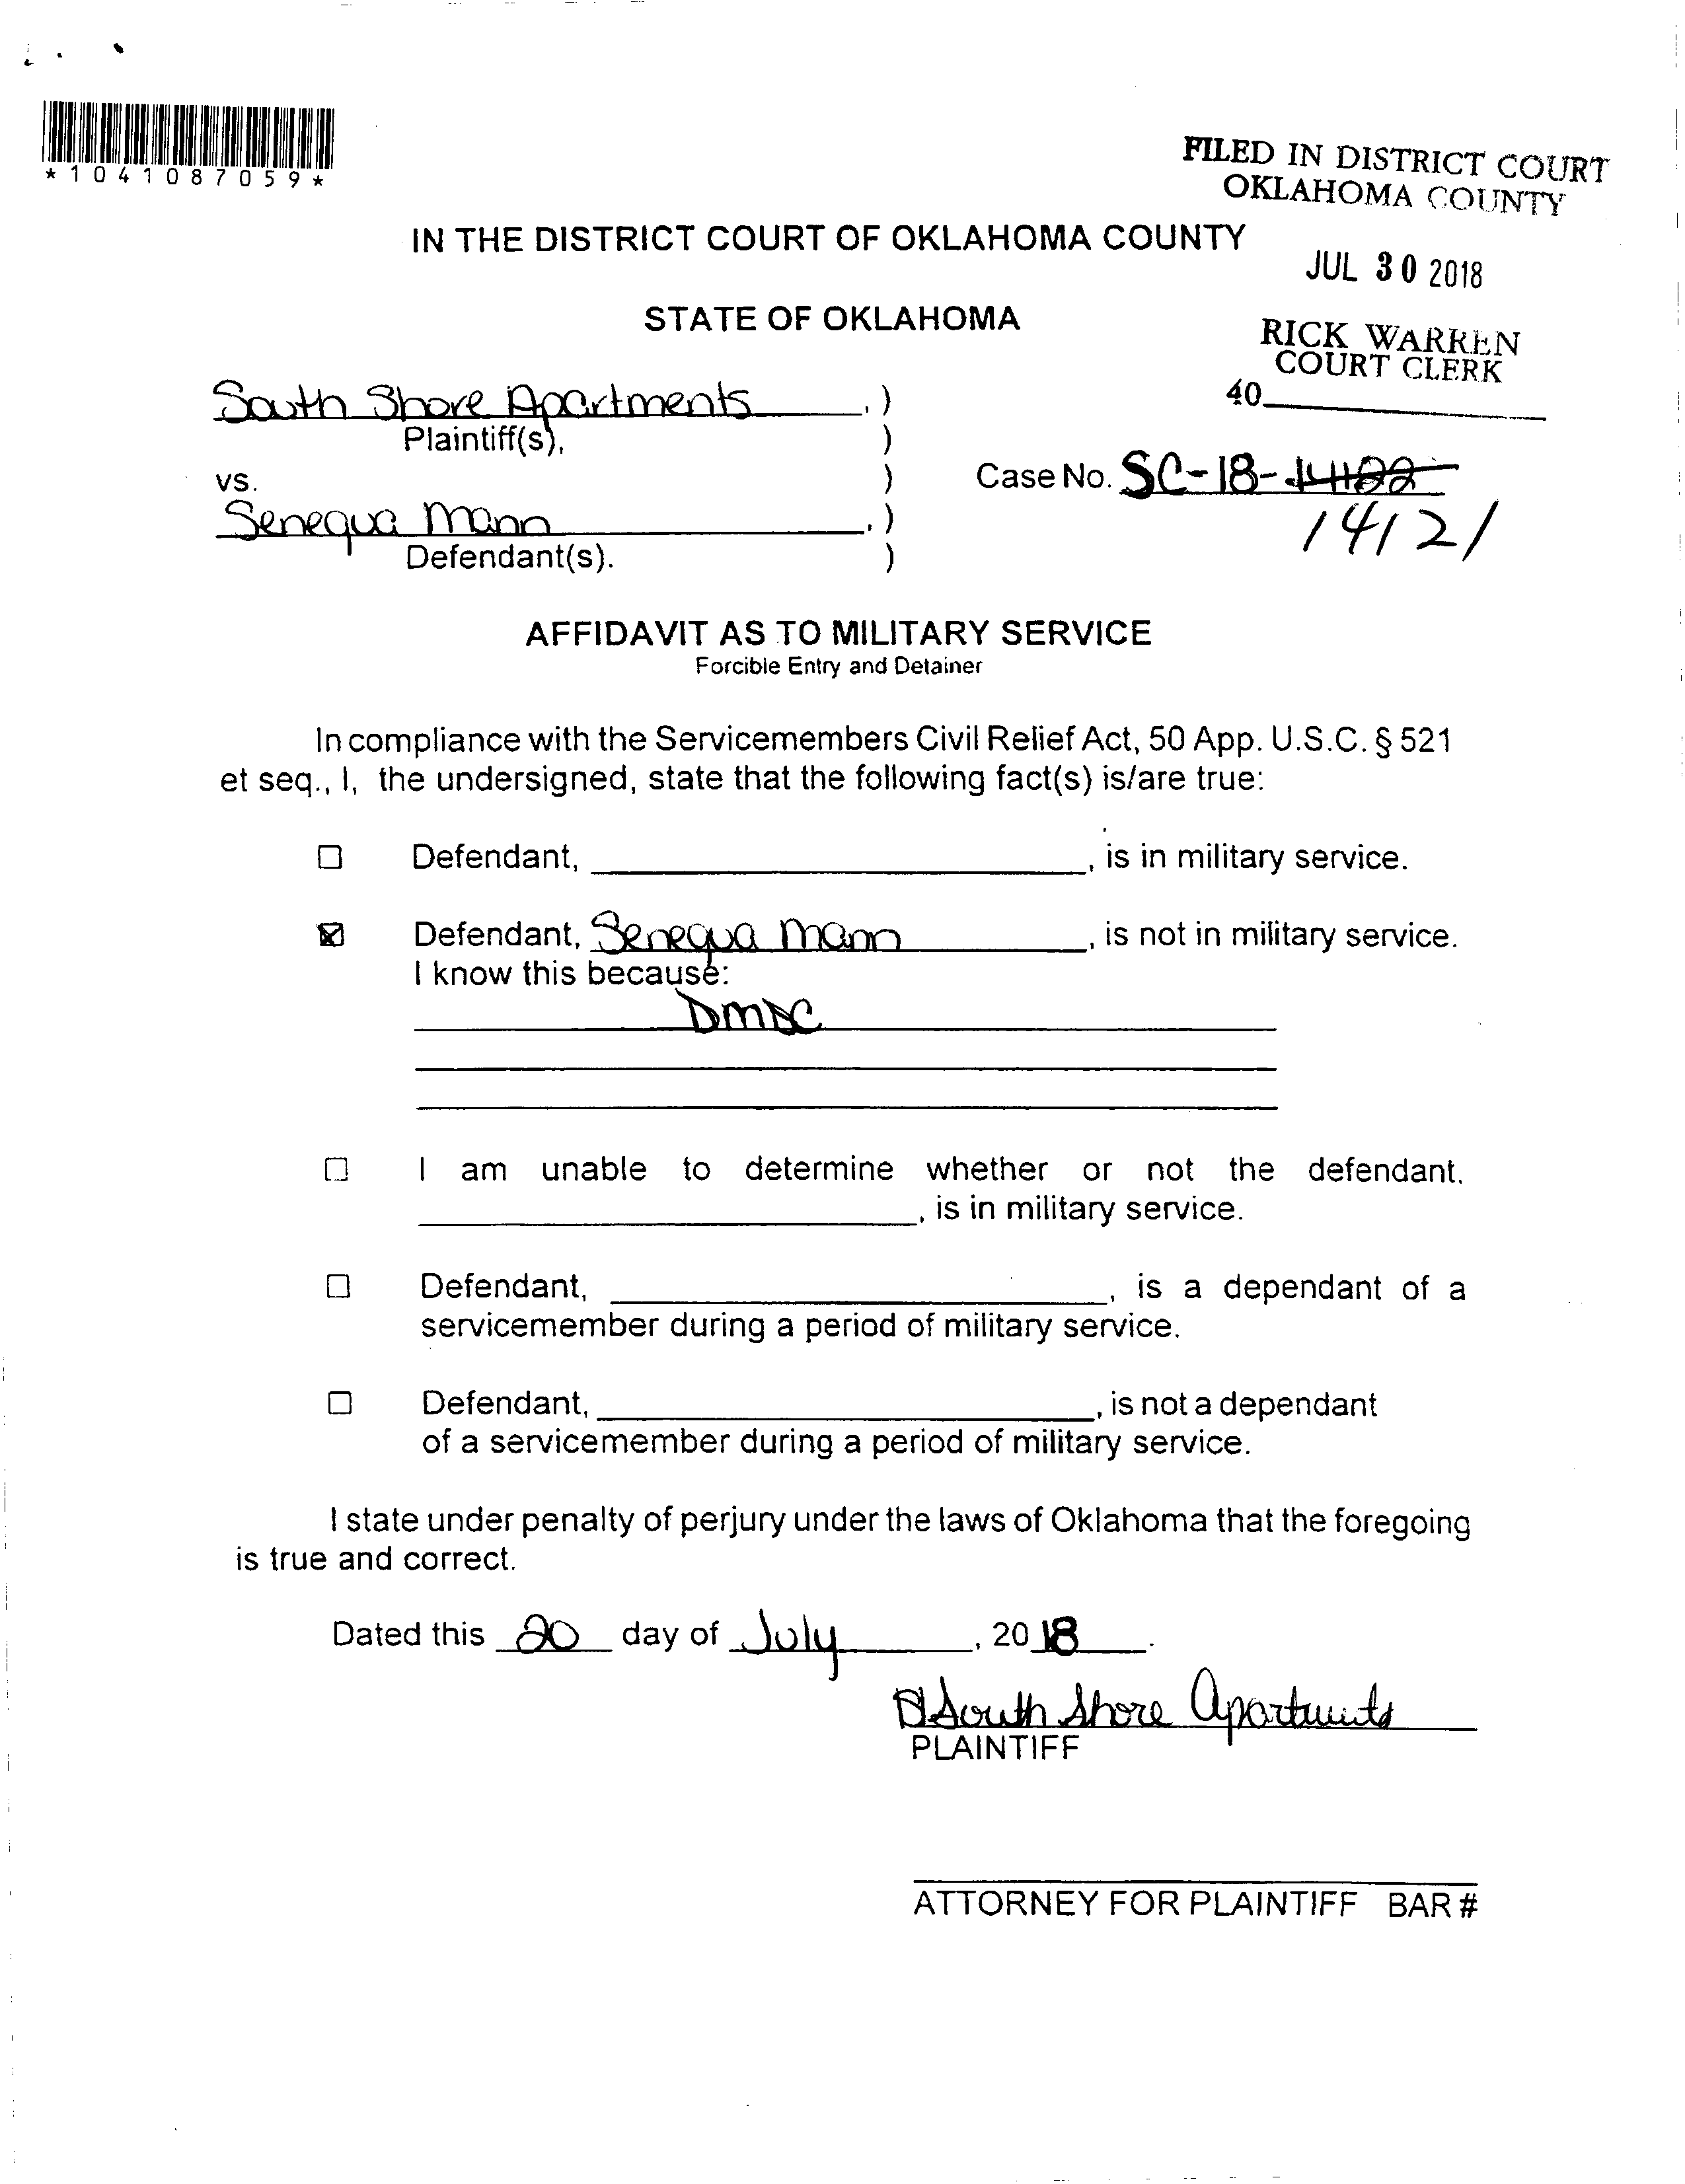 *1041087059*
FILED IN DISTRICT COURT
OKLAHOMA COUNTY
IN THE DISTRICT COURT OF OKLAHOMA COUNTY
JUL 30 2018
STATE OF OKLAHOMA
RICK WARREN
COURT CLERK
40
South Shore Apartments , )
Plaintiff(s), )
vs. )
Case No. SC-18-14122
14121
Senequa Mann , )
Defendant(s). )
AFFIDAVIT AS TO MILITARY SERVICE
Forcible Entry and Detainer
In compliance with the Servicemembers Civil Relief Act, 50 App. U.S.C. § 521
et seq., I, the undersigned, state that the following fact(s) is/are true:
☐ Defendant, , is in military service.
☒ Defendant, Senequa Mann , is not in military service.
I know this because:
DMDC
☐ I am unable to determine whether or not the defendant.
, is in military service.
☐ Defendant, , is a dependant of a
servicemember during a period of military service.
☐ Defendant, , is not a dependant
of a servicemember during a period of military service.
I state under penalty of perjury under the laws of Oklahoma that the foregoing
is true and correct.
Dated this 20 day of July , 2018 .
South Shore Apartments
PLAINTIFF
ATTORNEY FOR PLAINTIFF BAR #